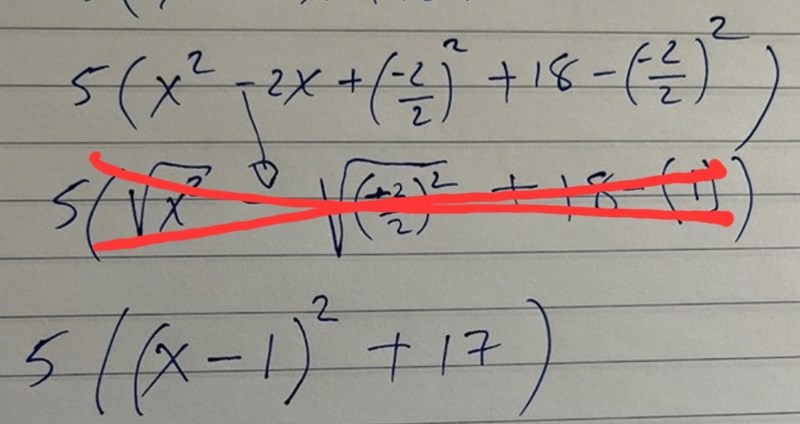 5(x² - 2x + (-2/2)² + 18 - (-2/2)²)
5(√x² - √(+2/2)² + 18 - (1))
5((x - 1)² + 17)